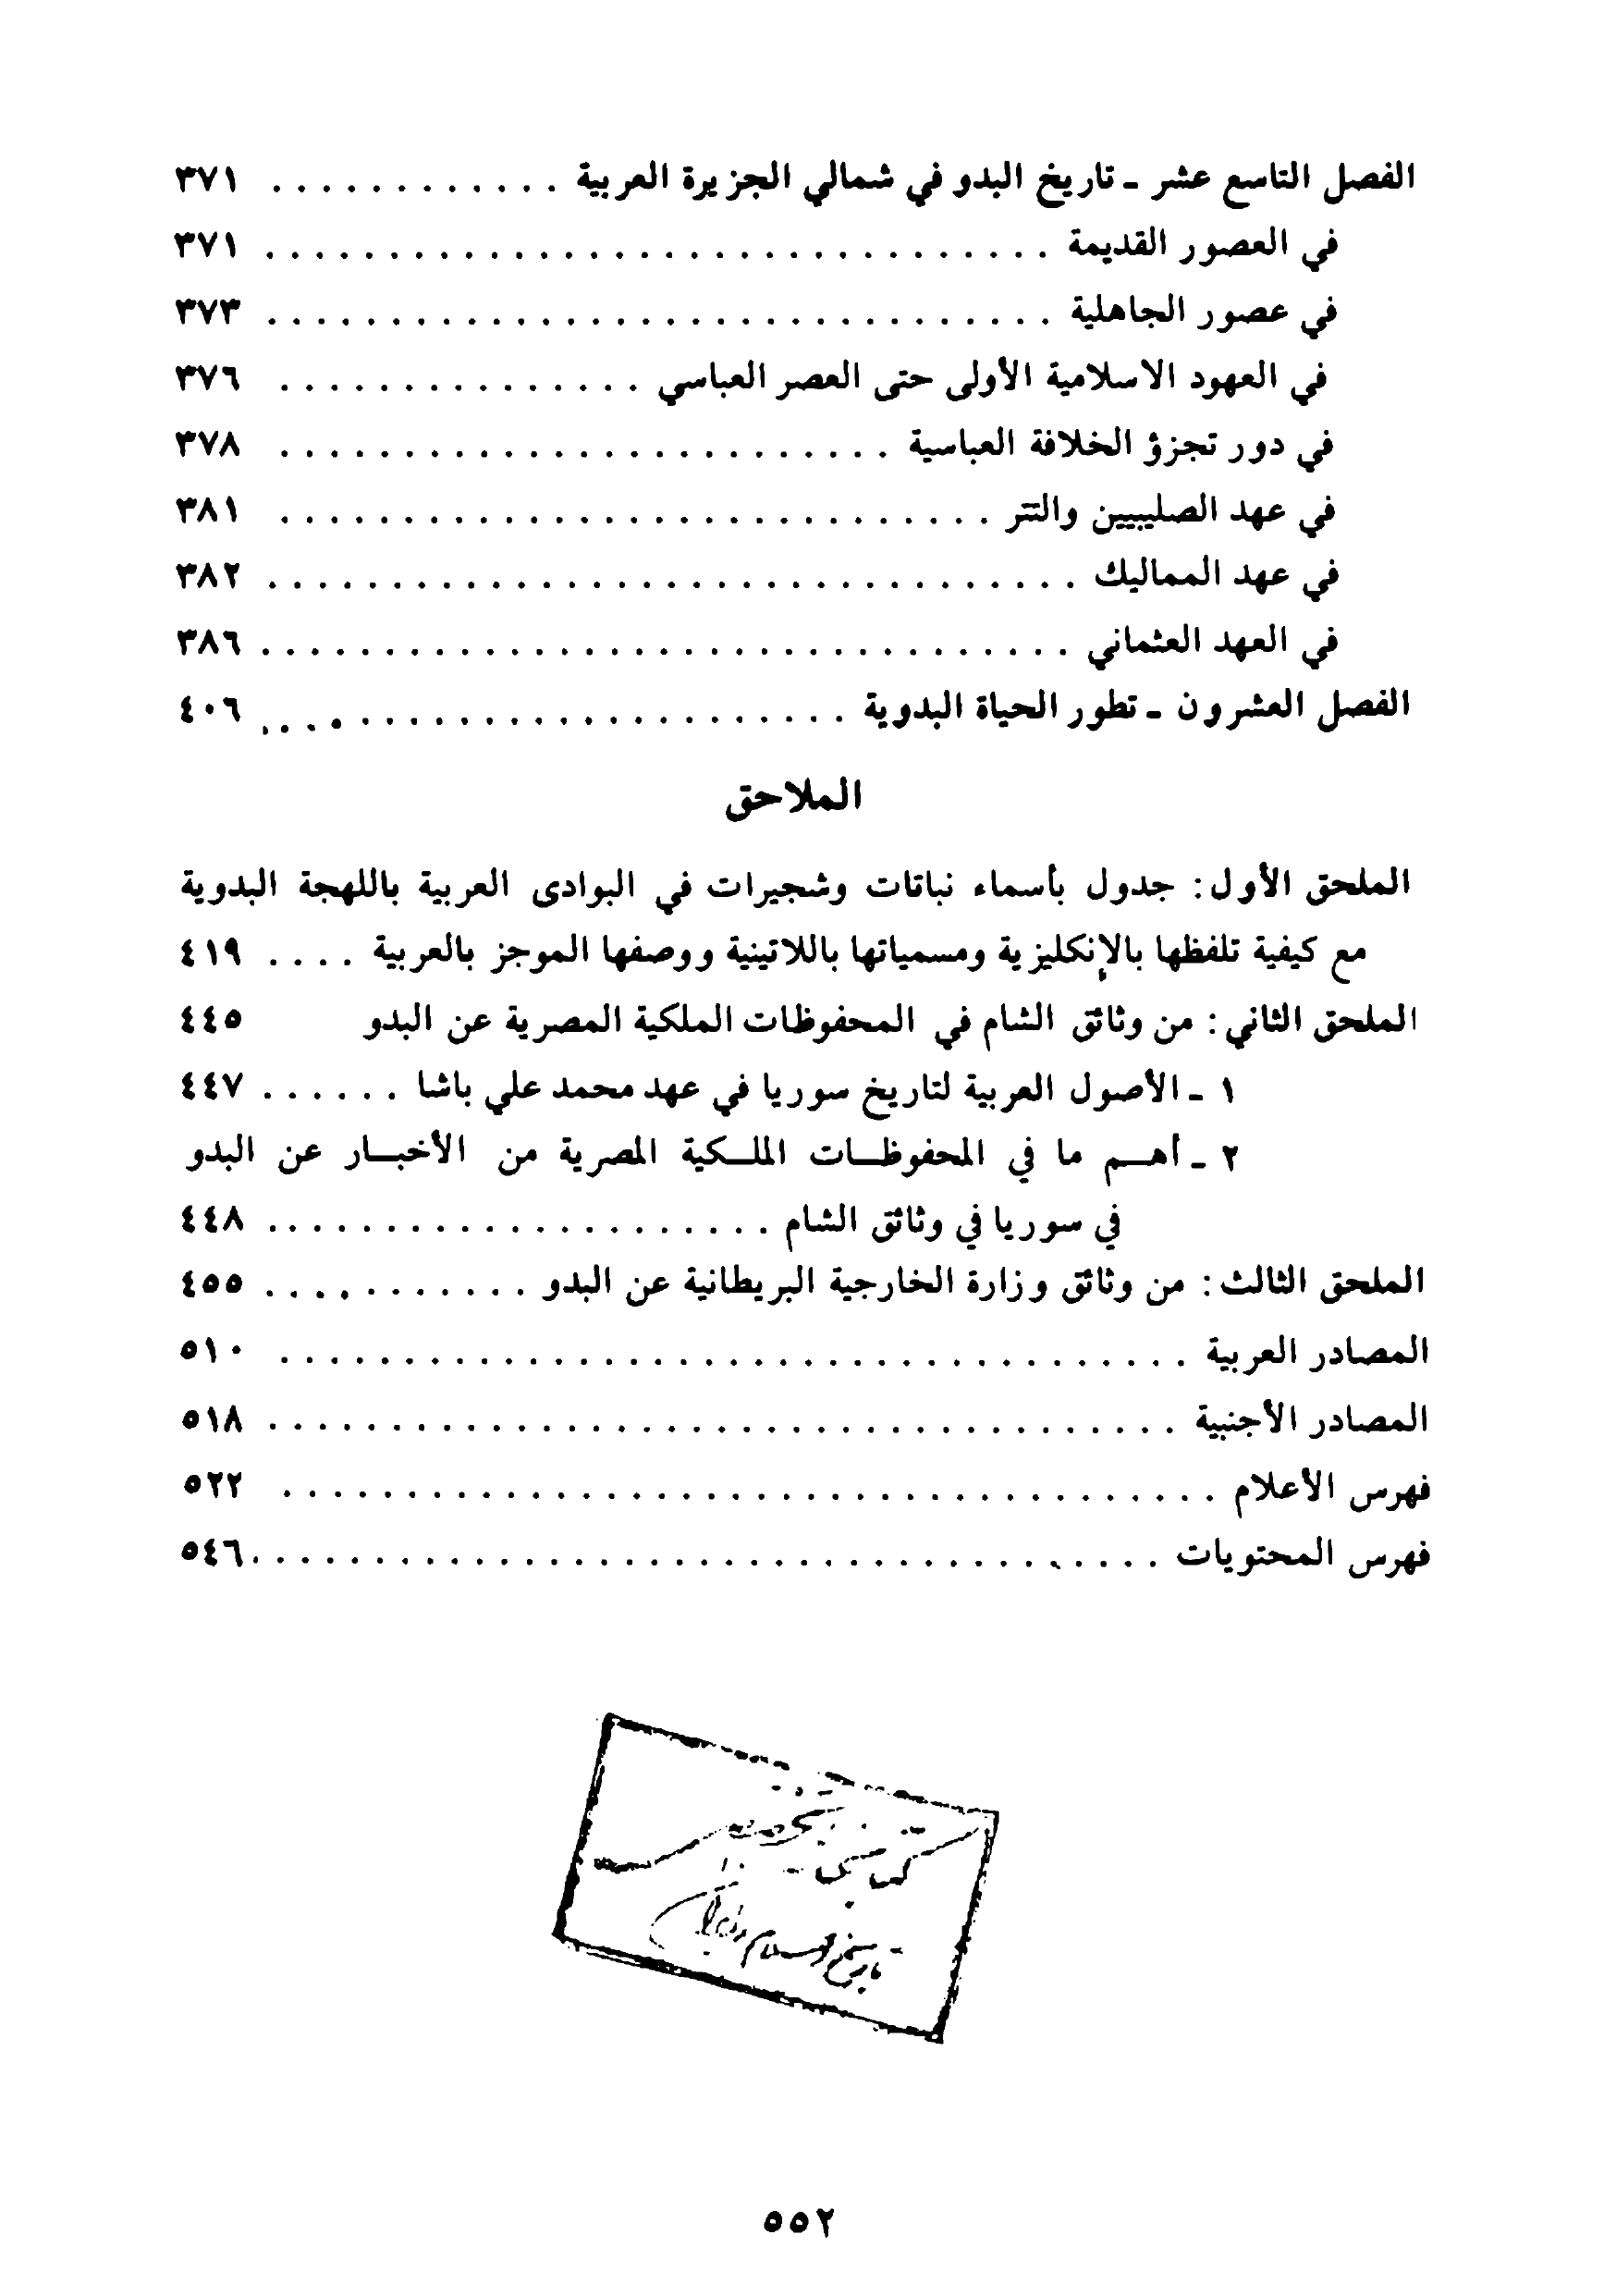 الفصل التاسع عشر - تاريخ البدو في شمالي الجزيرة العربية . . . . . . . . . . . . ٣٧١
في العصور القديمة . . . . . . . . . . . . . . . . . . . . ٣٧١
في عصور الجاهلية . . . . . . . . . . . . . . . . . . . . ٣٧٣
في العهود الاسلامية الأولى حتى العصر العباسي . . . . . . . . . . . . . . . ٣٧٦
في دور تجزؤ الخلافة العباسية . . . . . . . . . . . . . . . . . . . . ٣٧٨
في عهد الصليبيين والتتر . . . . . . . . . . . . . . . . . . . . ٣٨١
في عهد المماليك . . . . . . . . . . . . . . . . . . . . ٣٨٢
في العهد العثماني . . . . . . . . . . . . . . . . . . . . ٣٨٦
الفصل العشرون - تطور الحياة البدوية . . . . . . . . . . . . . . . . . . . . ٤٠٦
الملاحق
الملحق الأول: جدول بأسماء نباتات وشجيرات في البوادى العربية باللهجة البدوية
مع كيفية تلفظها بالإنكليزية ومسمياتها باللاتينية ووصفها الموجز بالعربية . . . . ٤١٩
الملحق الثاني: من وثائق الشام في المحفوظات الملكية المصرية عن البدو ٤٤٥
١ - الأصول العربية لتاريخ سوريا في عهد محمد علي باشا . . . . . . ٤٤٧
٢ - أهـم ما في المحفوظـات الملـكية المصرية من الأخبـار عن البدو
في سوريا في وثائق الشام . . . . . . . . . . . . . . . . . . . . ٤٤٨
الملحق الثالث: من وثائق وزارة الخارجية البريطانية عن البدو . . . . . . . . . . . ٤٥٥
المصادر العربية . . . . . . . . . . . . . . . . . . . . ٥١٠
المصادر الأجنبية . . . . . . . . . . . . . . . . . . . . ٥١٨
فهرس الأعلام . . . . . . . . . . . . . . . . . . . . ٥٢٢
فهرس المحتويات . . . . . . . . . . . . . . . . . . . . ٥٤٦
٥٥٢